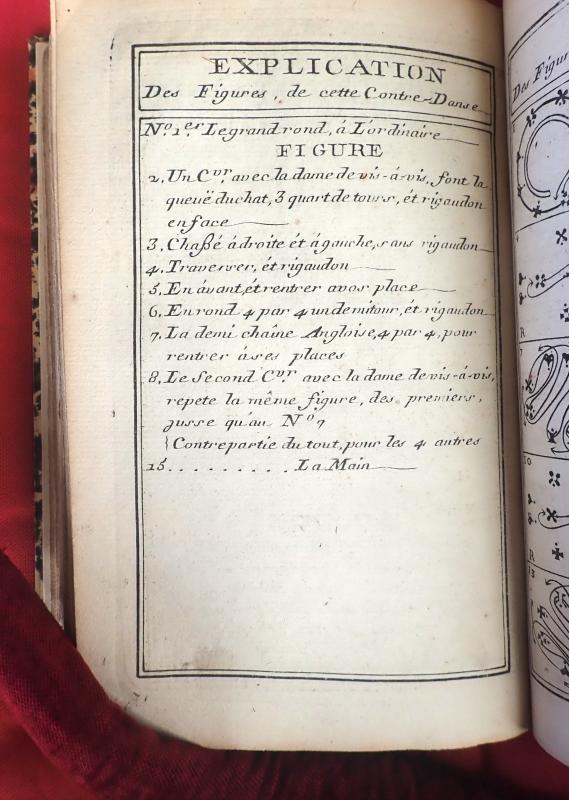 EXPLICATION
Des Figures, de cette Contre-Danse
No. 1.er Le grand rond, á L'ordinaire
FIGURE
2. Un Cvr. avec la dame de vis-á-vis, font la
queuë du chat, 3 quart de tours, ét rigaudon
en face
3. Chaßé ádroite ét ágauche, sans rigaudon
4. Traverser, ét rigaudon
5. En ávant, ét rentrer avos place
6. En rond 4 par 4 un demi tour, ét rigaudon
7. La demi chaîne Angloise, 4 par 4, pour
rentrer áses places
8. Le Second Cvr. avec la dame de vis-á-vis,
repete la même figure, des premiers,
jusse qu'au No. 7
Contrepartie du tout, pour les 4 autres
15. . . . . . . . . . La Main
Des Figur